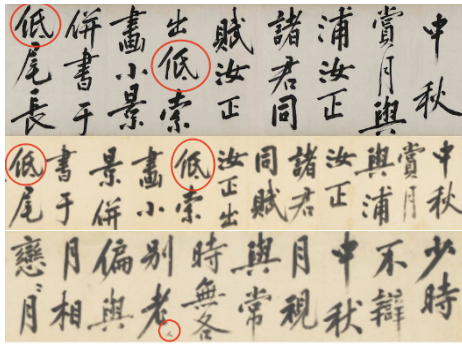 中秋
賞月與
浦汝正
諸君同
賦汝正
出低索
畫小景
併書于
低尾長
中秋
賞月
與浦
汝正
諸君
同賦
汝正出
低索
畫小
景併
書于
低尾
少時
不辯
中秋
月視
與常
時無各
別老人
偏與
月相
戀〻月